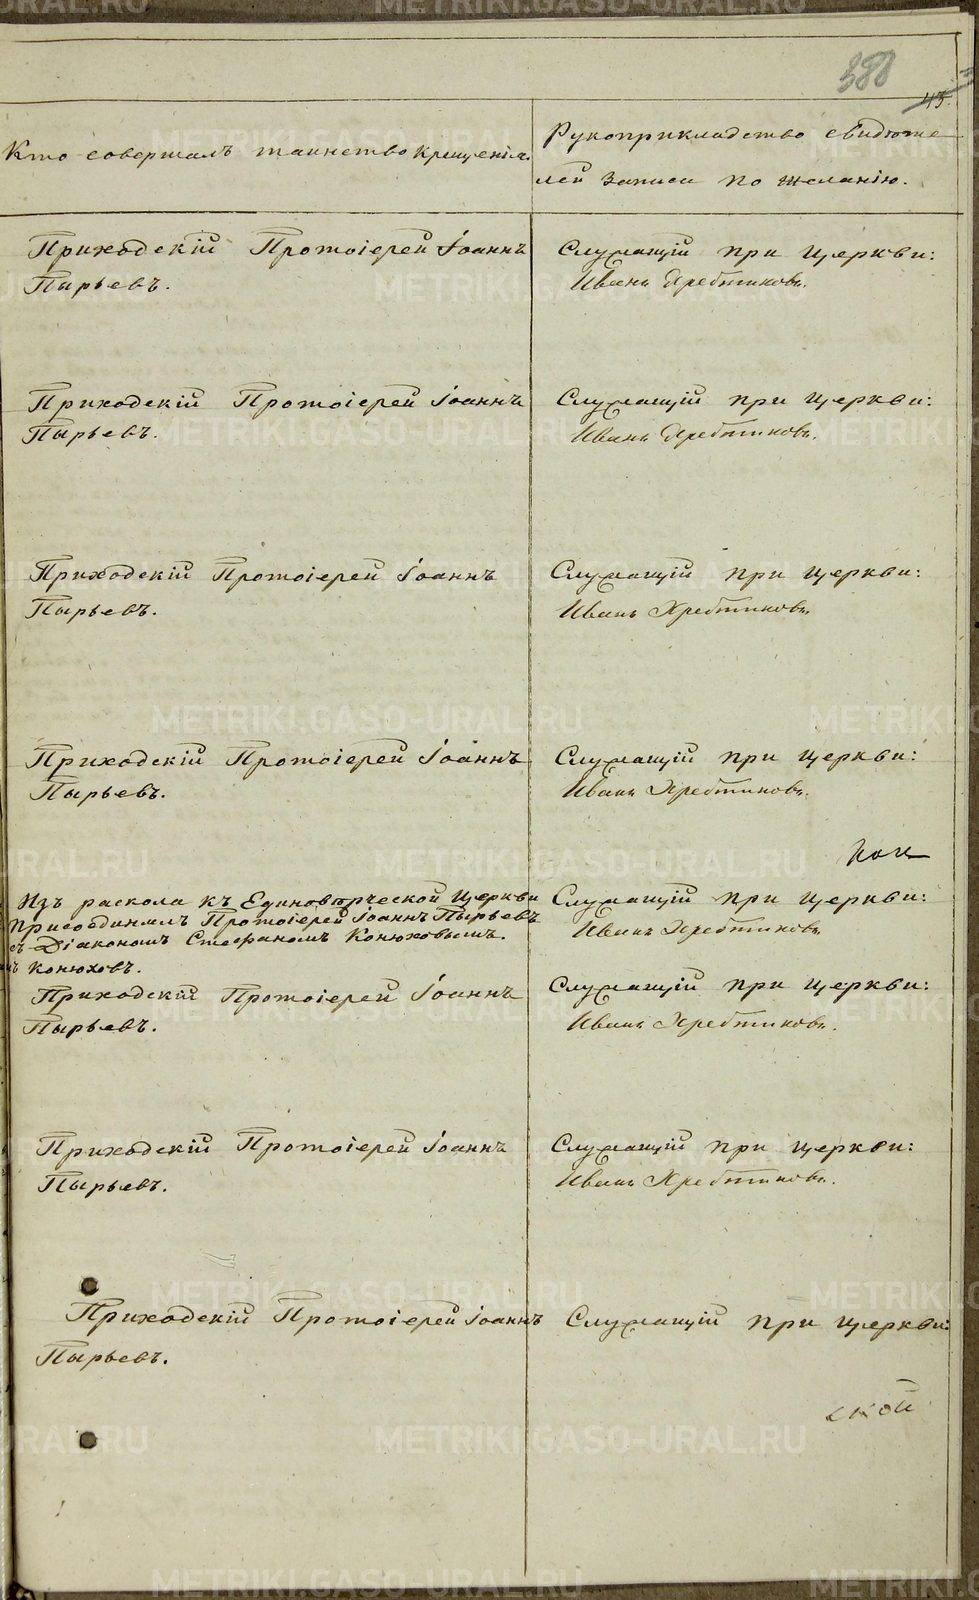 388
45.
Кто совершалъ таинство крещенія.
Рукоприкладство свидѣте
лей записи по желанію.
Приходскій Протоіерей Іоаннъ
Пырьевъ.
Служащій при церкви:
Иванъ Хребтиковъ.
Приходскій Протоіерей Іоаннъ
Пырьевъ.
Служащій при церкви:
Иванъ Хребтиковъ.
Приходскій Протоіерей Іоаннъ
Пырьевъ.
Служащій при церкви:
Иванъ Хребтиковъ.
Приходскій Протоіерей Іоаннъ
Пырьевъ.
Служащій при церкви:
Иванъ Хребтиковъ.
Изъ раскола къ Единовѣрческой Церкви
присоединилъ Протоіерей Іоаннъ Пырьевъ
съ Діакономъ Стефаномъ Конюховымъ.
Конюховъ.
Служащій при церкви:
Иванъ Хребтиковъ.
Приходскій Протоіерей Іоаннъ
Пырьевъ.
Служащій при церкви:
Иванъ Хребтиковъ.
Приходскій Протоіерей Іоаннъ
Пырьевъ.
Служащій при церкви:
Иванъ Хребтиковъ.
Приходскій Протоіерей Іоаннъ
Пырьевъ.
Служащій при церкви:
ской
METRIKI.GASO-URAL.RU